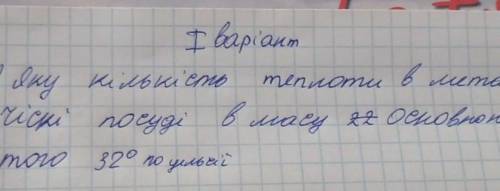 I варіант
Яку кількість теплоти в мета
посуді в масу
того 32° по цельсії